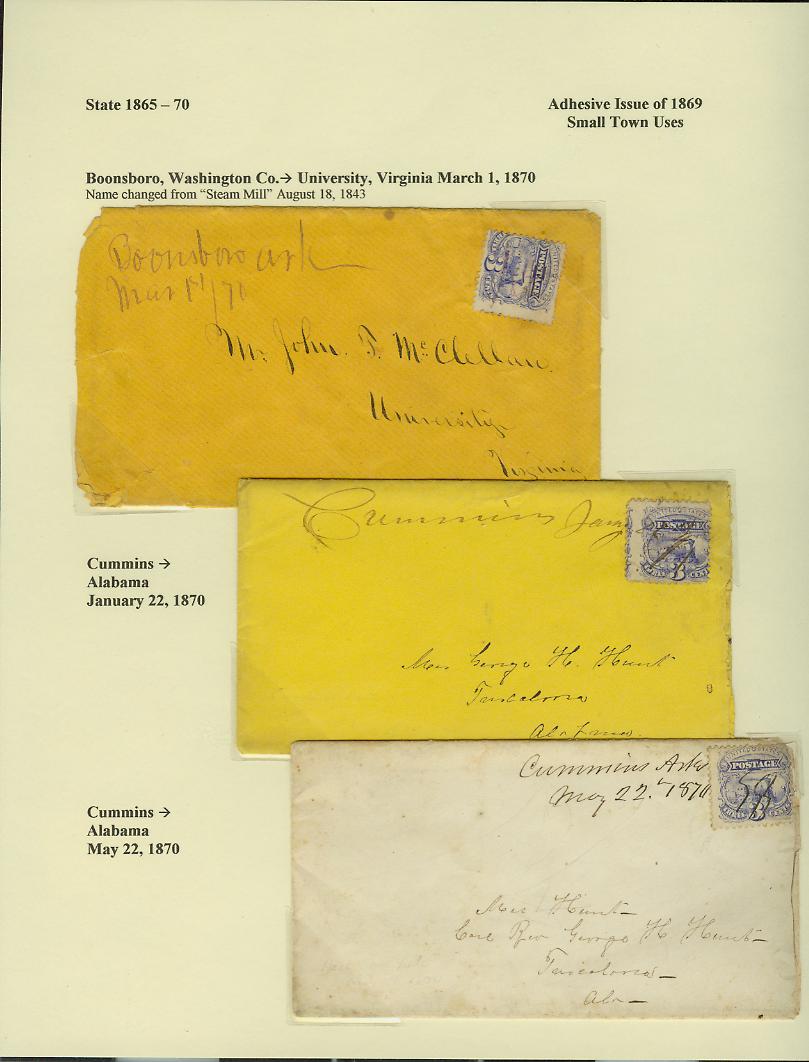 State 1865 – 70
Adhesive Issue of 1869
Small Town Uses
Boonsboro, Washington Co.→ University, Virginia March 1, 1870
Name changed from “Steam Mill” August 18, 1843
Boonsboro Ark
Mar 1st/70
POSTAGE
Mr. John. F. McClellan.
University
Virginia
Cummins Jany
UNITED STATES
POSTAGE
3
Cummins →
Alabama
January 22, 1870
George H. Hunt
Tuscaloosa
Alabama.
Cummins Arks
May 22. 1870
UNITED STATES
POSTAGE
Cummins →
Alabama
May 22, 1870
Hunt
Care Rev George H Hunt
Tuscaloosa
Ala